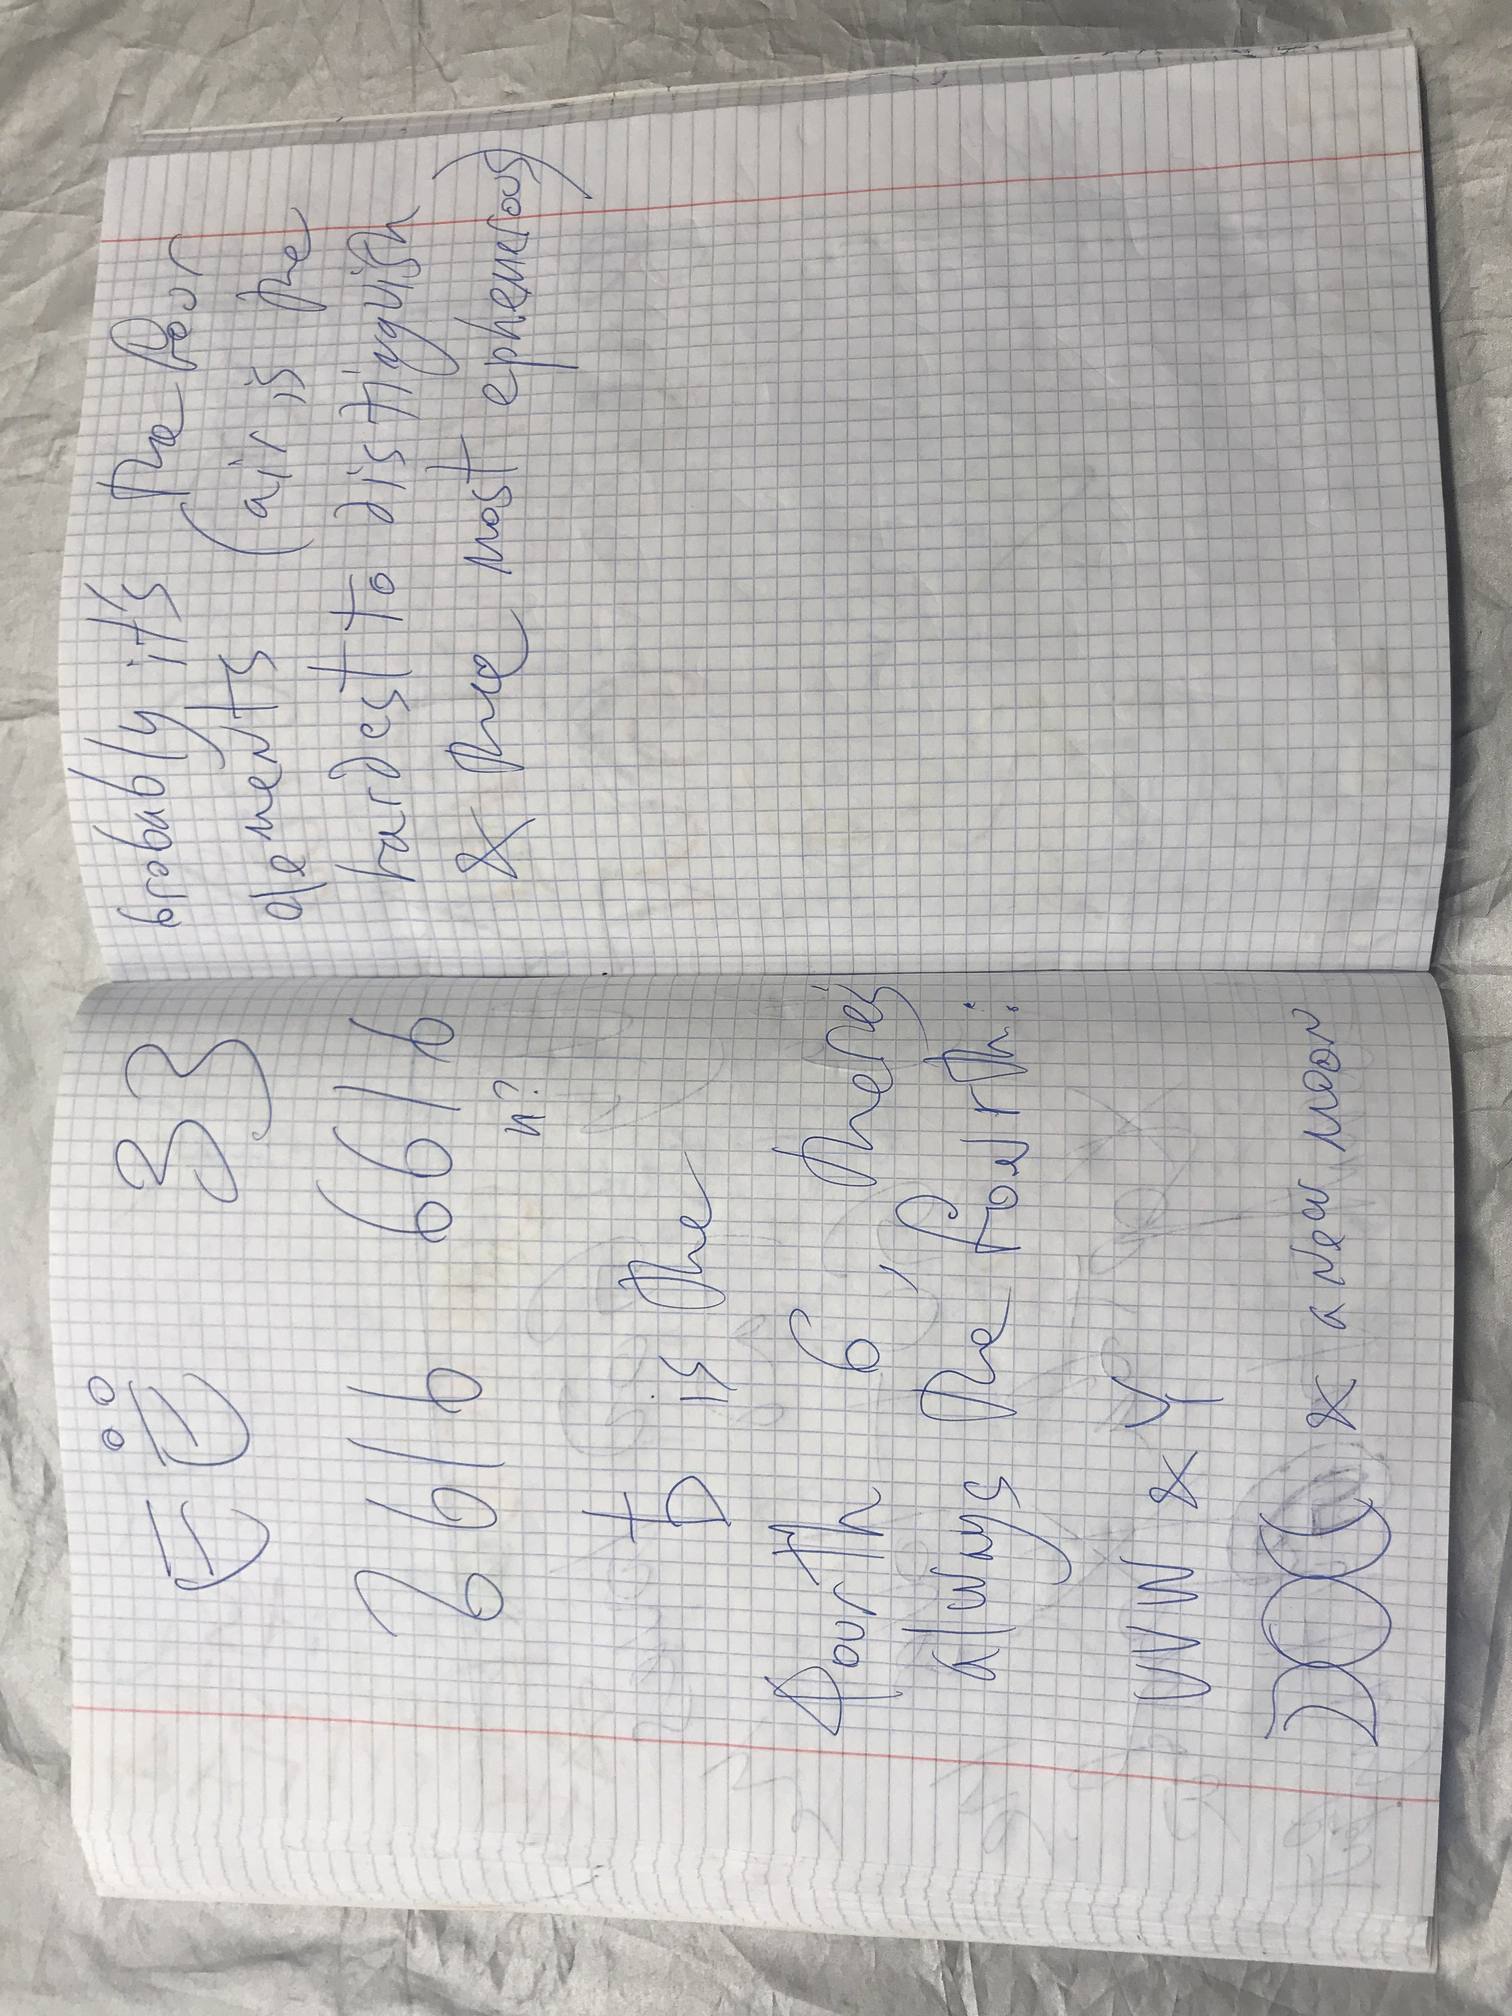 33
и?
Ъ is the
fourth 6, there's
always the fourth:
UVW & Y
& a new moon
probably it's the four
elements (air is the
hardest to distinguish
& the most ephemerous)